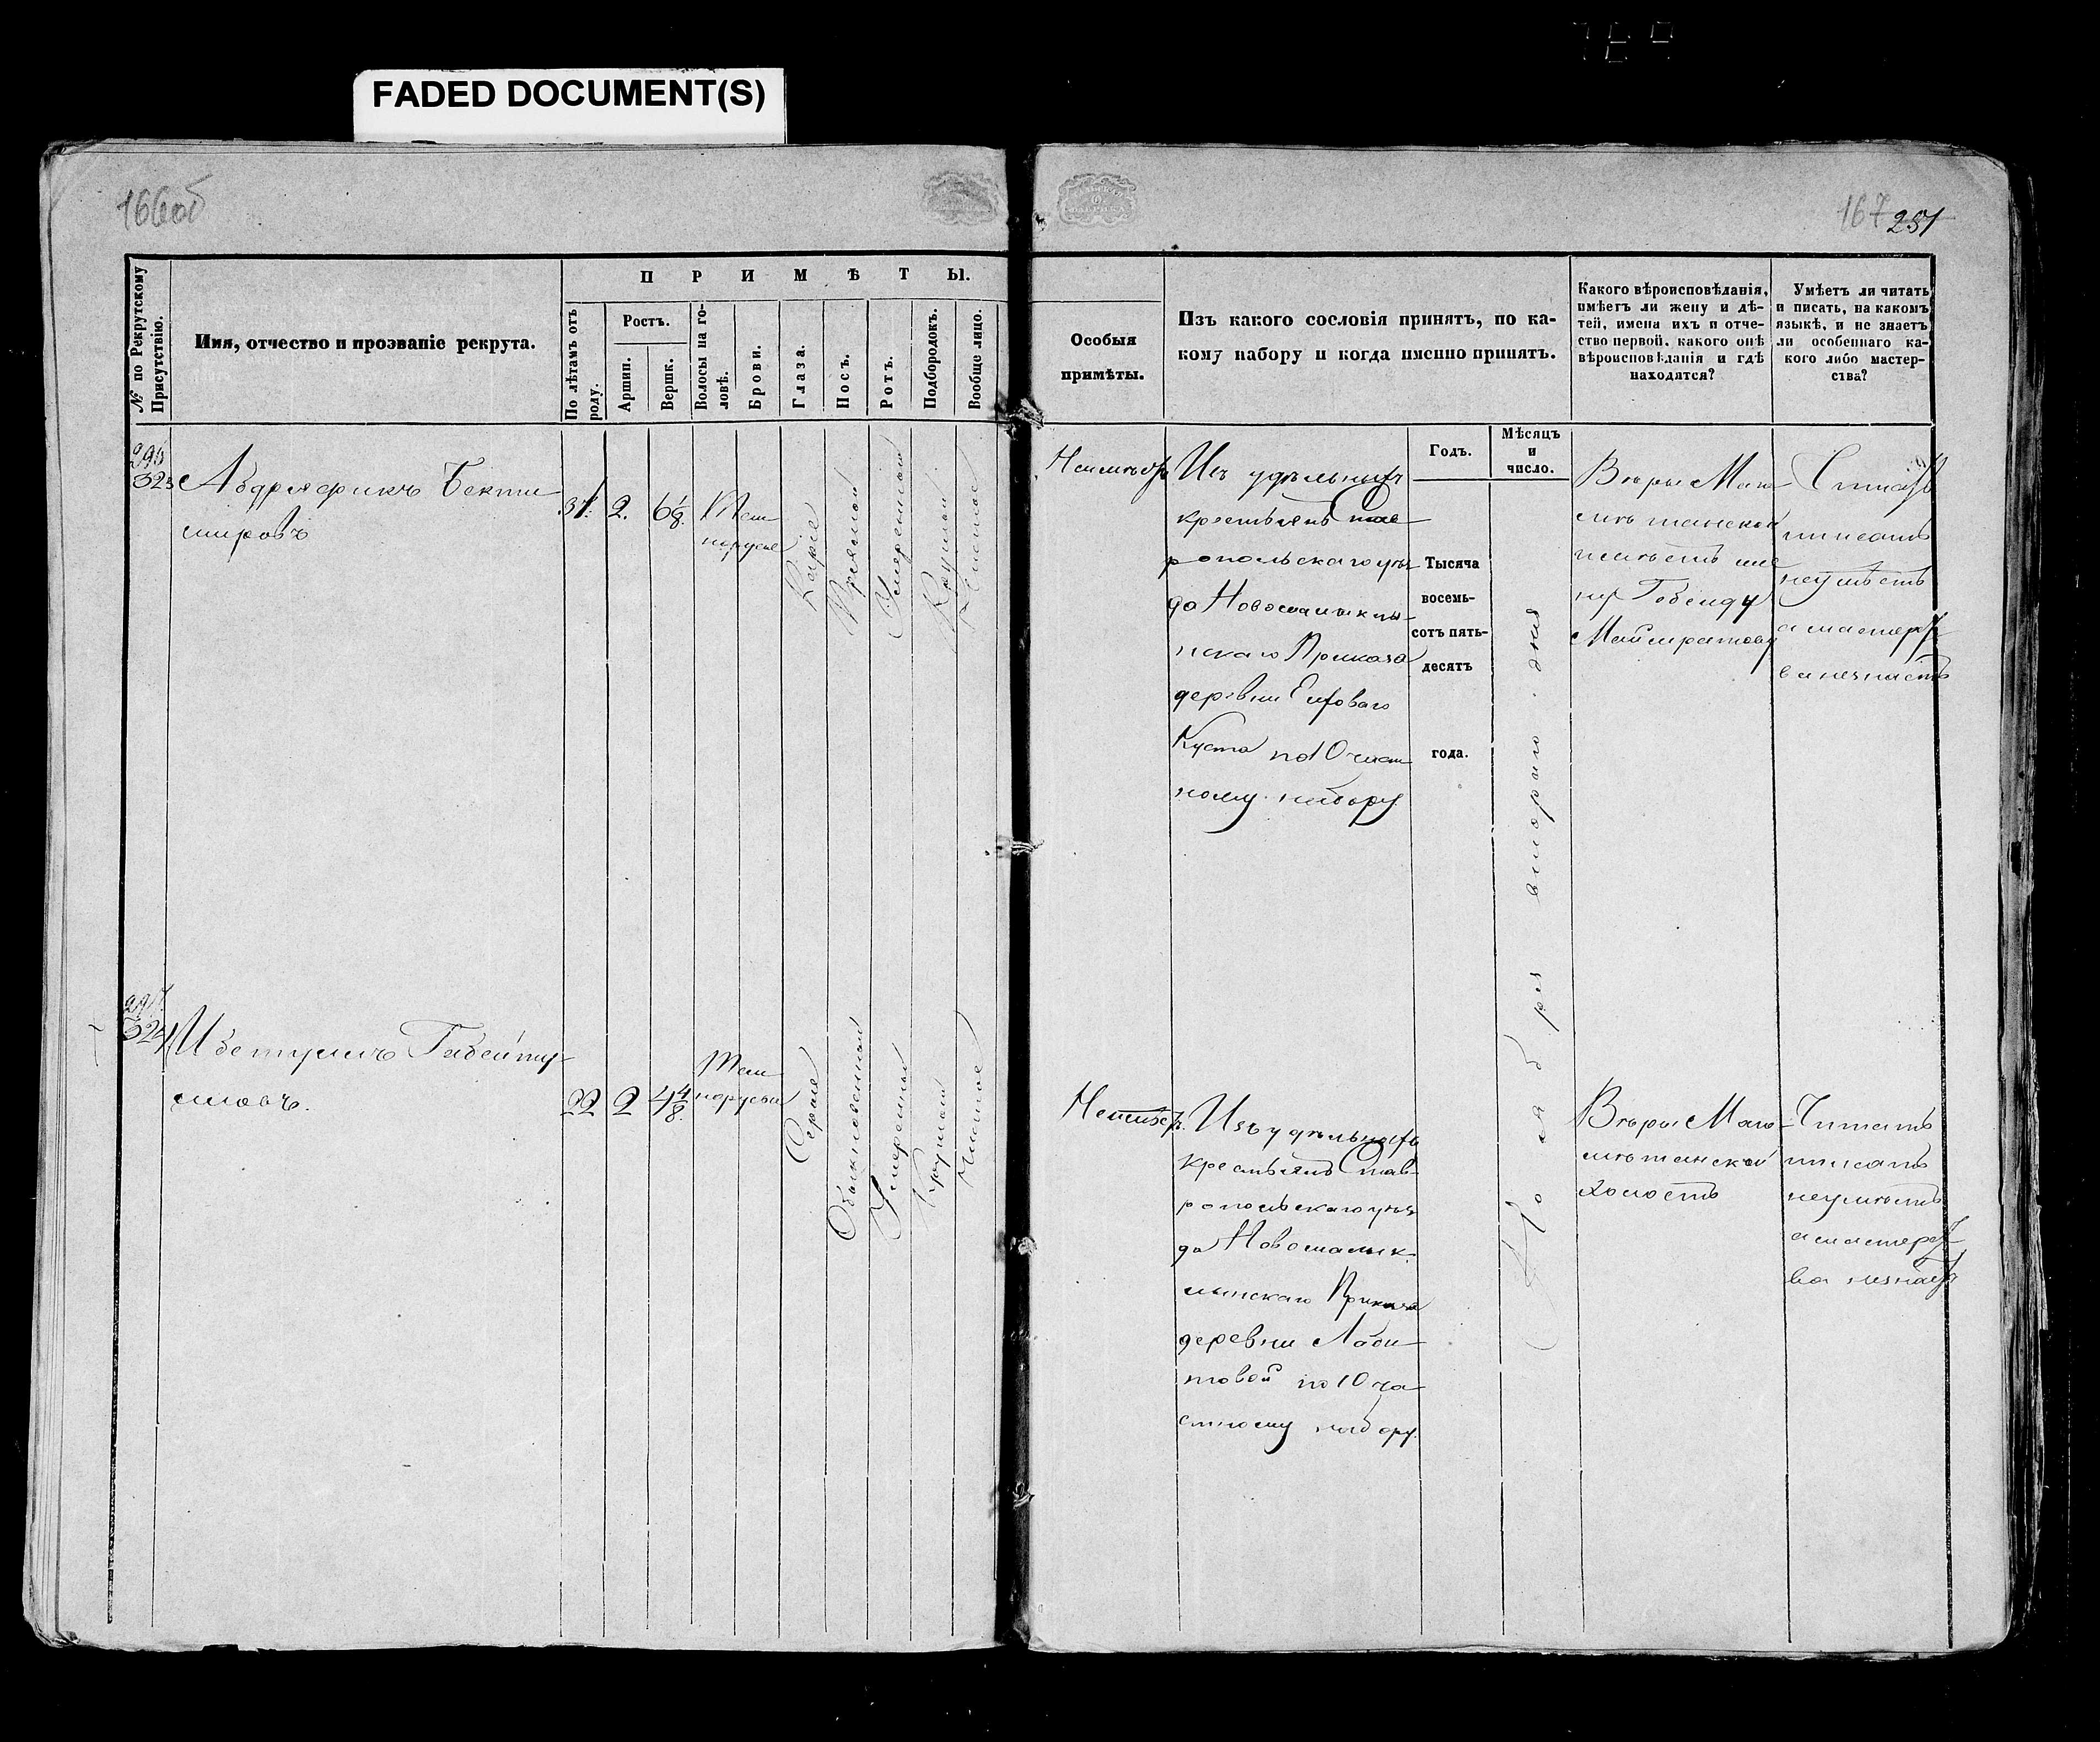 FADED DOCUMENT(S)
166об
167 251
№ по Рекрутскому Присутствію.
Имя, отчество и прозваніе рекрута.
ПРИМѢТЫ.
По лѣтамъ отъ роду.
Ростъ.
Аршин.
Вершк.
Волосы на го-
ловѣ.
Брови.
Глаза.
Носъ.
Ротъ.
Подбородокъ.
Вообще лицо.
Особыя
примѣты.
Изъ какого сословія принятъ, по ка-
кому набору и когда именно принятъ.
Какого вѣроисповѣданія,
имѣетъ ли жену и дѣ-
тей, имена ихъ и отче-
ство первой, какого онѣ
вѣроисповѣданія и гдѣ
находятся?
Умѣетъ ли читать
и писать, на какомъ
языкѣ, и не знаетъ
ли особеннаго ка-
кого либо мастер-
ства?
Годъ.
Мѣсяцъ
и
число.
323
Бекти
мировъ
31.
2.
6 1/8.
Тем
норусые
Каріе
Прямой
Умеренный
Круглый
Чистое
Изъ удѣльныхъ
крестьянъ Став
ропольскаго уѣз
да Новомалыклы-
нскаго Приказа
деревни
Куста по 10 част
ному набору
Тысяча
восемь-
сотъ пять-
десятъ
года.
Ноября второго дня
Вѣры Маго
метанской
Читать
писать
неумѣетъ
а мастерст
ва незнаетъ
324
22
2
4 4/8.
Тем
норусые
Серые
Обыкновенный
Умеренный
Круглый
Чистое
Изъ удѣльныхъ
крестьянъ Став
ропольскаго уѣз
да Новомалык
линскаго Приказа
деревни Лаби
товой по 10 ча
стному набору.
Вѣры Маго
метанской
холостъ
Читать
писать
неумѣетъ
а мастерст
ва незнаетъ